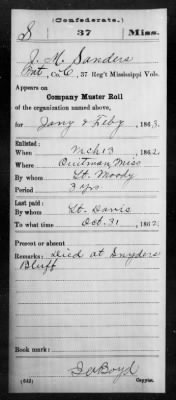 (Confederate.)
S 37 Miss.
J. M. Sanders
Pvt, Co. C, 37 Reg't Mississippi Vols.
Appears on
Company Muster Roll
of the organization named above,
for Jany & Feby, 1863.
Enlisted:
When Mch 13, 1862.
Where Quitman, Miss
By whom Lt. Moody
Period 3 yrs
Last paid:
By whom Lt. Davis
To what time Oct. 31, 1862.
Present or absent
Remarks: Died at Snyders
Bluff
Book mark:
Boyd
(642) Copyist.